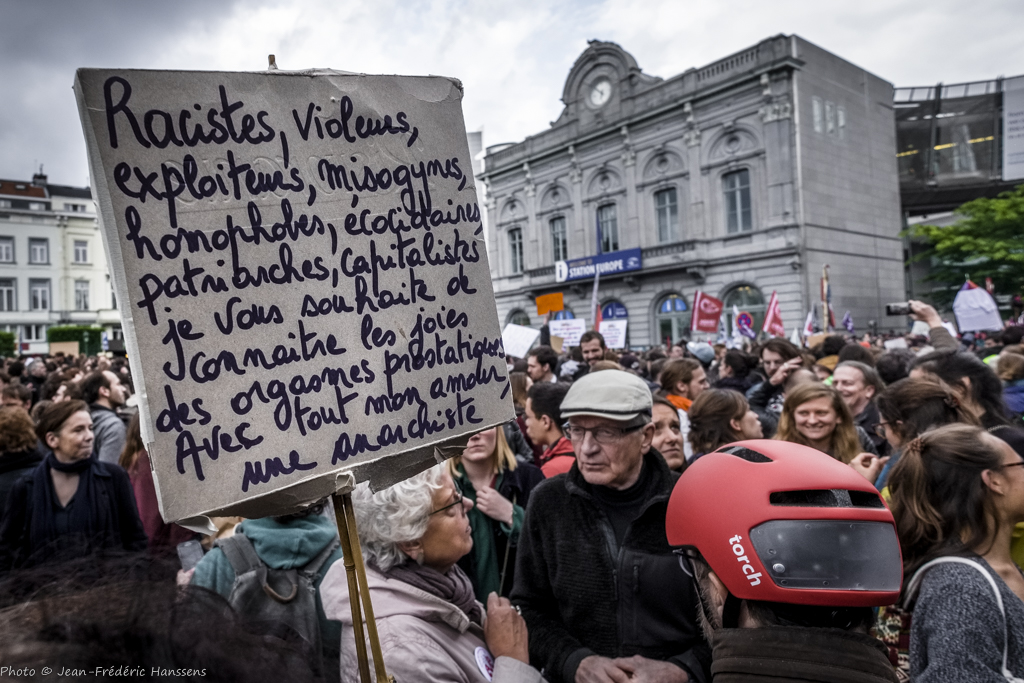 Racistes, violeurs,
exploiteurs, misogynes,
homophobes, écocidaires,
patriarches, capitalistes
je vous souhaite de
connaitre les joies
des orgasmes prostatiques
Avec tout mon amour,
une anarchiste
STATION EUROPE
torch
Photo © Jean-Frédéric Hanssens